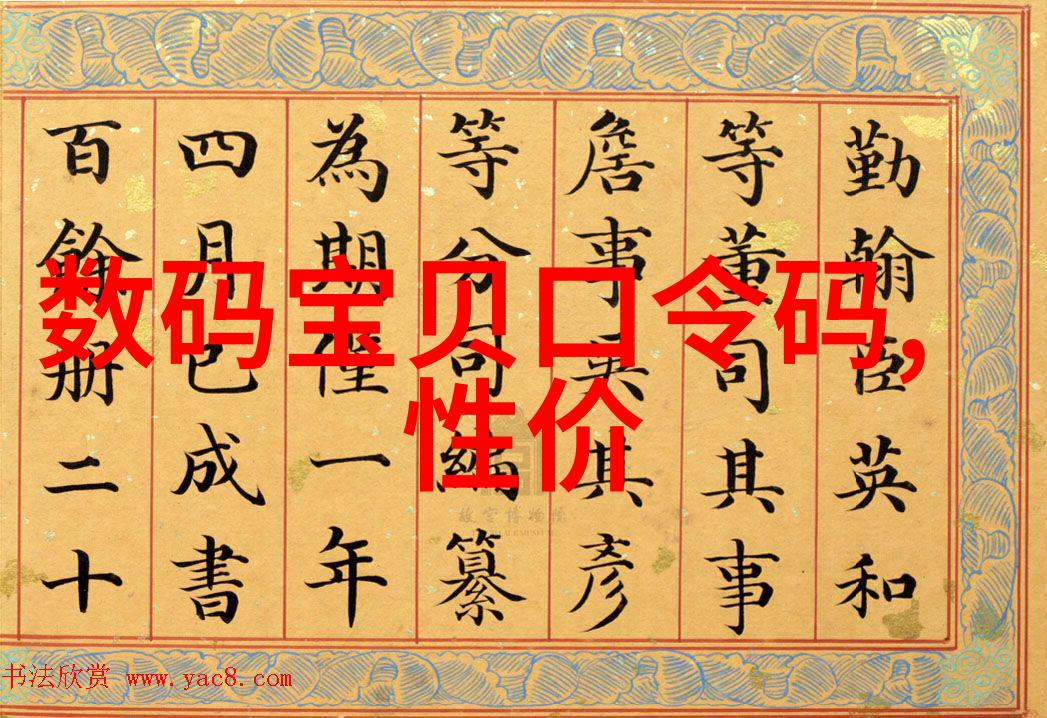 数码宝贝口令码,
性价
勤翰臣英和
等董司其事
詹事吳其彥
等分司編纂
為期僅一年
四月已成書
百餘冊二十
故宫博物院
书法欣赏 www.yac8.com